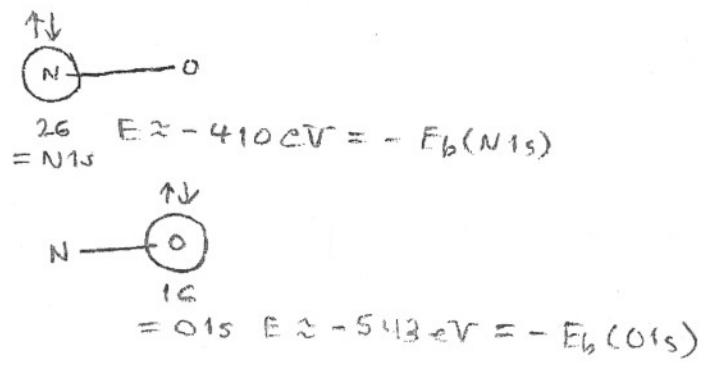 ↑↓
N — O
2σ E ≈ -410 eV = - E_b(N1s)
= N1s
↑↓
N — O
1σ
= O1s E ≈ -543 eV = - E_b(O1s)